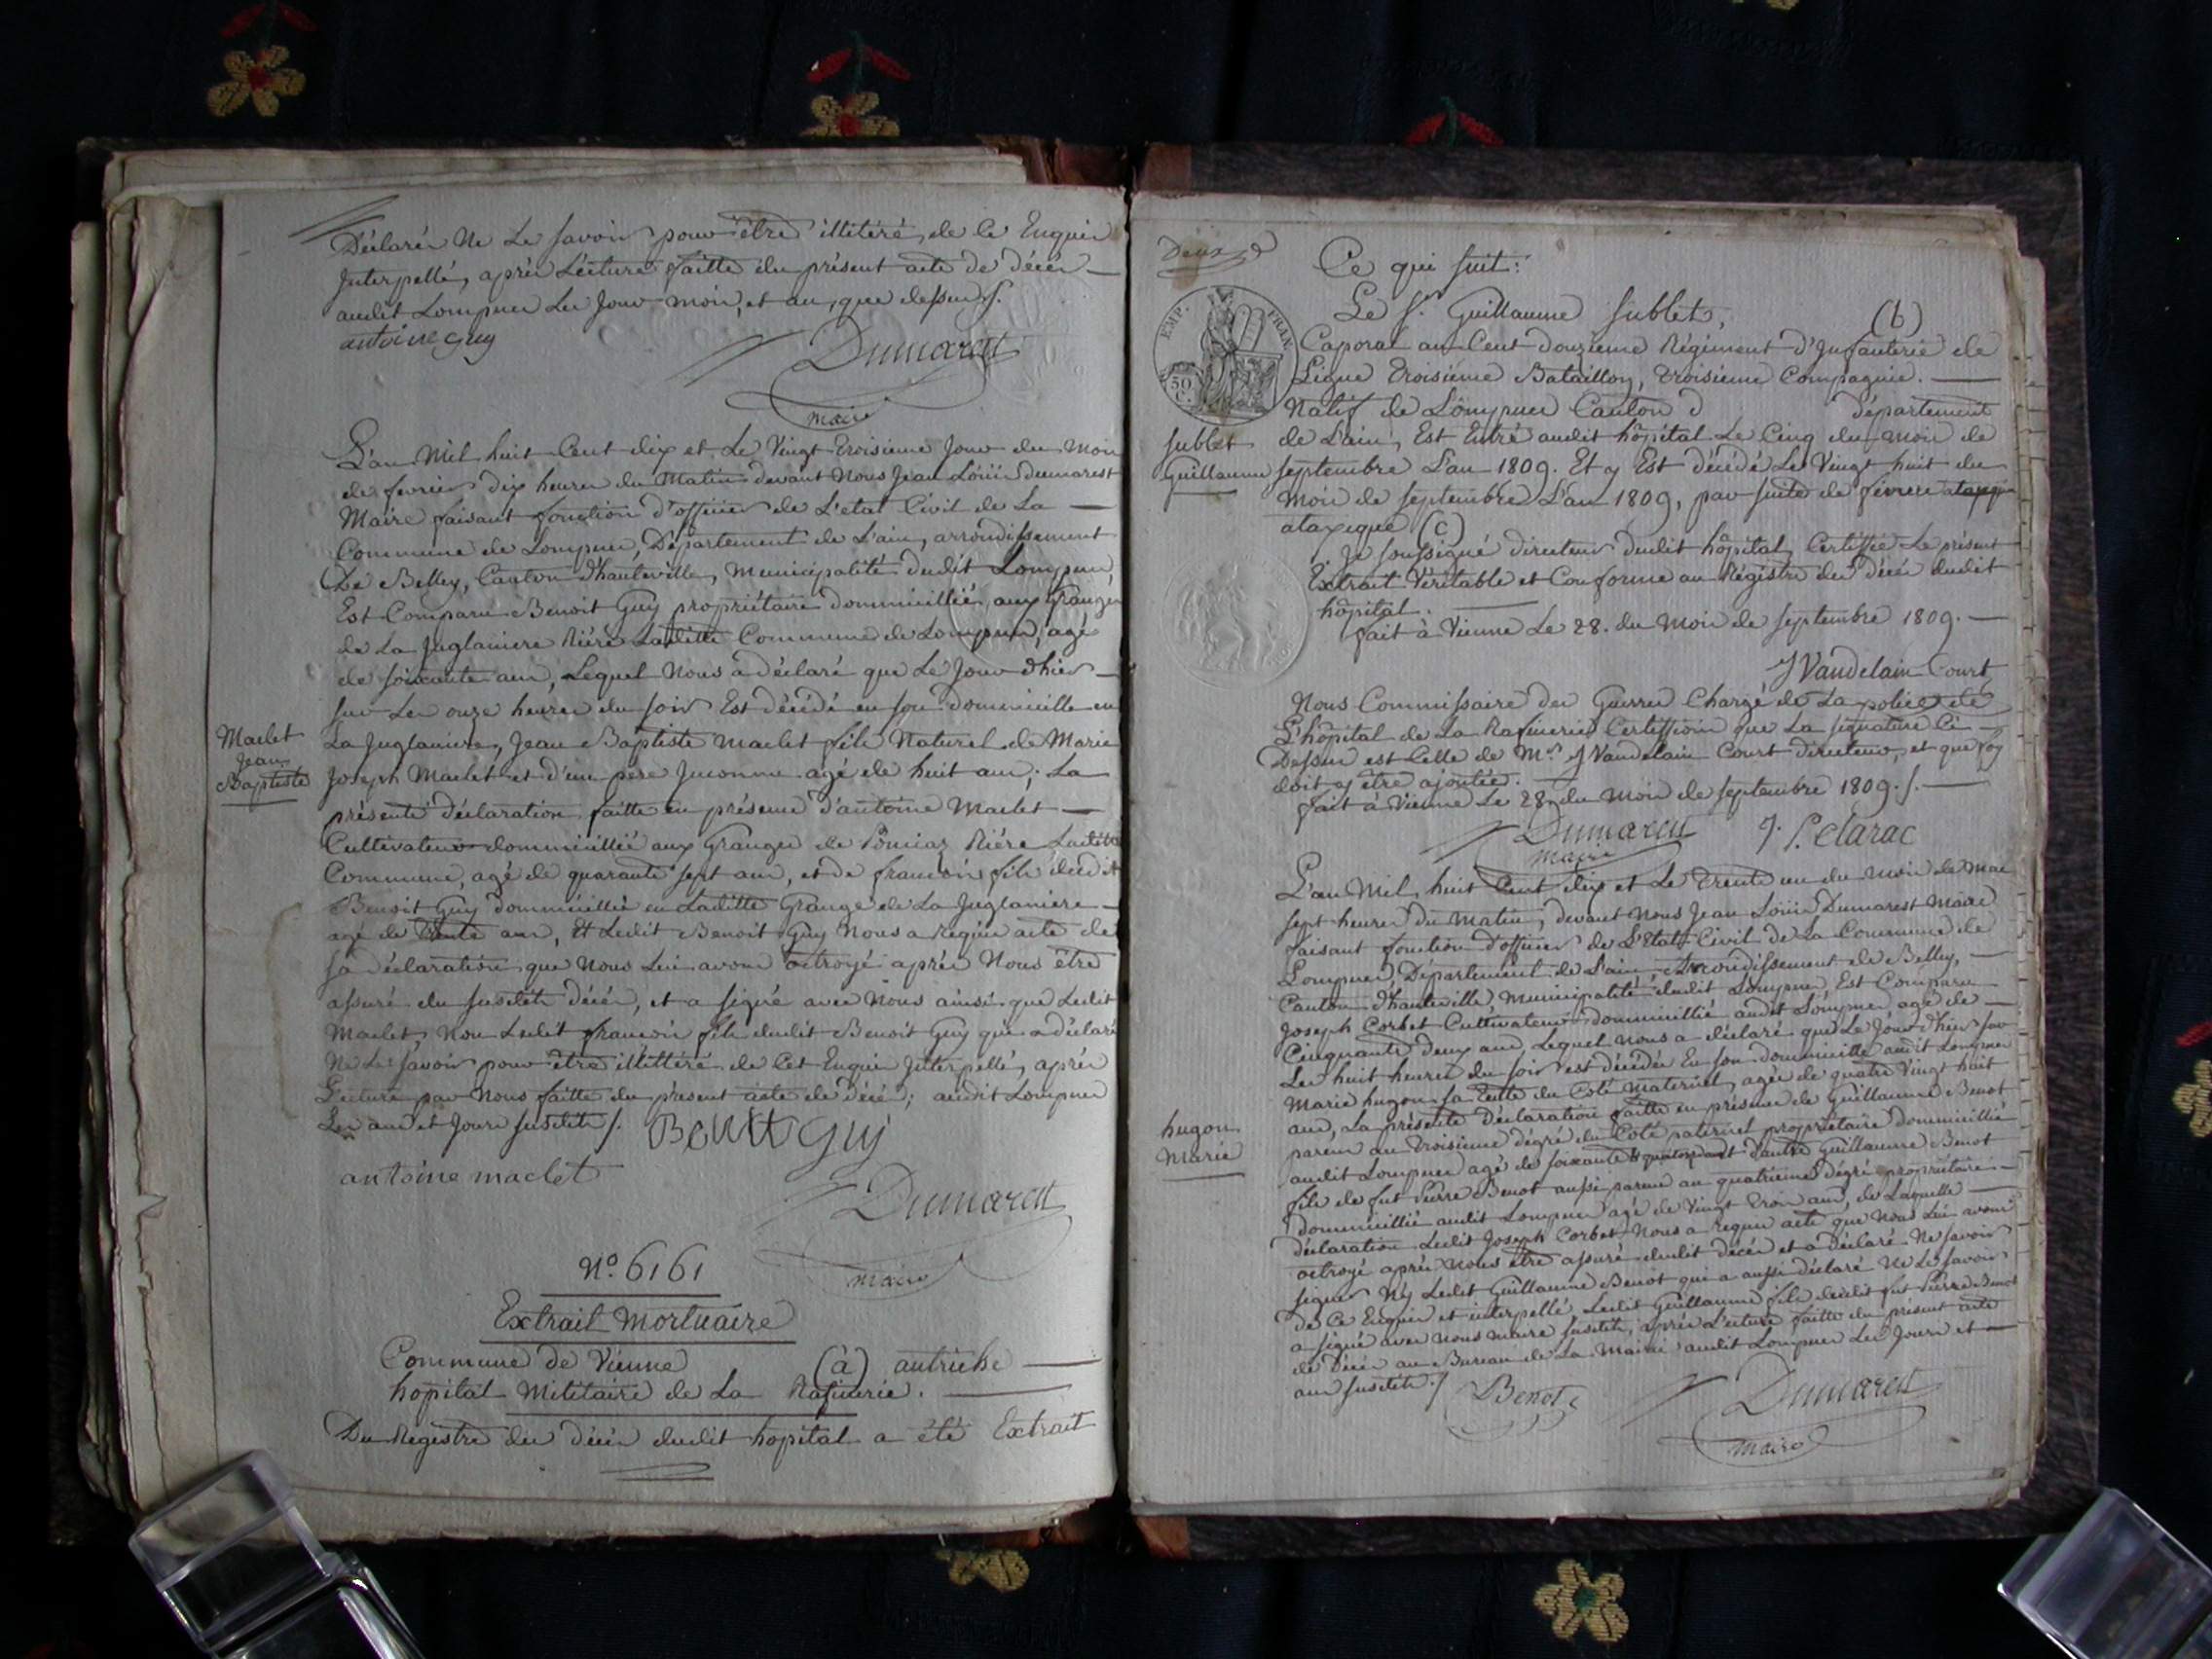 Déclaré Ne Le savoir pour être illitéré, de ce Enquir
Interpellé, après Lecture faitte du présent acte de décès
audit Lompner Les Jour mois, et an, que dessus /.
antoine guy
Dumarest
maire
L'an Mil huit Cent dix et Le Vingt troisieme Jour du Mois
de fevrier dix heures du Matin devant Nous Jean Loüis Dumarest
Maire faisant fonction d'officier de L'etat Civil de La
Commune de Lompner, Département de L'ain, arrondissement
De Belley, Canton d'hauteville, Municipalité dudit Lompner,
Est Comparu Benoit Guy propriétaire dommicillié aux Granges
de La Juglaniere Riére Laditte Commune de Lompner, agé
de soixante ans, Lequel Nous à déclaré que Le Jour d'hier
sur Les onze heures du soir Est décédé en son dommicille en
Maclet
Jean
Baptiste
La Juglaniere, Jean Baptiste Maclet fils Naturel de Marie
Joseph Maclet et d'un pere Inconnu agé de huit ans; La
présente déclaration faitte en présence d'antoine Maclet
Cultivateur dommicillié aux Granges de Ponciaz Riére Laditte
Commune, agé de quarante sept ans, et de francois fils dudit
Benoit Guy dommicillié en Laditte Grange de La Juglaniere
agé de trente ans, Et Ledit Benoit Guy Nous a Requis acte de
sa déclaration que Nous Lui avons octroyé après Nous être
assuré du susdit décès, et a signé avec Nous ainsi que Ledit
Maclet, Non Ledit francois fils dudit Benoit Guy qui a déclaré
Ne Le savoir pour être illittéré de Cet Enquis Interpellé, après
Lecture par Nous faitte du présent acte de décé; audit Lompner
Les an et Jours susdits /. Benoit Guy
antoine maclet
Dumarest
maire
N.º 6161
Extrait Mortuaire
Commune de Vienne (a) autriche
hopital Militaire de La Rafinerie.
Du Registre des décés dudit hopital a été Extrait
Deux
Ce qui suit:
Le S.r Guillaume Sublet, (b)
EMP. FRAN.
50 C.
Caporal au Cent douzieme Régiment d'Infanterie de
Ligne troisieme Bataillon, troisieme Compagnie.
Natif de Lompner Canton d département
Sublet
Guillaume
de L'ain, Est Entré audit hôpital Le Cinq du mois de
septembre L'an 1809. Et y Est décédé Le Vingt huit du
Mois de septembre L'an 1809, par suite de fievre
ataxique (c)
Je soussigné directeur dudit hôpital, Certiffie Le présent
Extrait Véritable et Conforme au Régistre des décès dudit
hôpital.
fait à Vienne Le 28. du Mois de septembre 1809.
J Vandelain Court
Nous Commissaire des Guerres Chargé de La police de
L'hôpital de La Rafinerie Certiffions que La signature Ci
Dessus est Celle de M.r J Vandelain Court directeur, et que foy
doit y être ajoutée.
fait à Vienne Le 28 du Mois de septembre 1809. /.
Dumarest
maire
L'an Mil huit Cent dix et Le trente un du mois de Mai
sept heures du matin, devant Nous Jean Loüis Dumarest Maire
faisant fonction d'officier de L'Etat Civil de La Commune de
Lompner, Département de L'ain, Arrondissement de Belley,
Canton d'hauteville, Municipalité dudit Lompner, Est Comparu
Joseph Corbet Cultivateur dommicillié audit Lompner, agé de
Cinquante deux ans Lequel Nous a déclaré que Le Jour d'hier sur
Les huit heures du soir est décédée En son dommicille audit Lompner
hugon
Marie
Marie hugon sa Tente du Coté Maternel, agée de quatre Vingt huit
ans, La présente Déclaration faitte en présence de Guillaume Benot
parent au troisieme dégré du Coté paternel propriétaire dommicillié
audit Lompner agé de soixante d'autre Guillaume Benot
fils de fut Pierre Benot aussi parent au quatrieme dégré propriétaire
dommicillié audit Lompner agé de Vingt trois ans, de Laquelle
déclaration Ledit Joseph Corbet Nous a requis acte que Nous Lui avons
octroyé après Nous être assuré dudit décés et a Déclaré Ne savoir
signer Ny Ledit Guillaume Benot qui a aussi déclaré Ne Le savoir
de Ce Enquis et interpellé, Ledit Guillaume fils dudit fut Pierre Benot
a signé avec Nous maire susdits, après Lecture faitte du présent acte
de décès au Bureau de La Mairie audit Lompner Les Jours et
an susdits. / Benot
Dumarest
maire